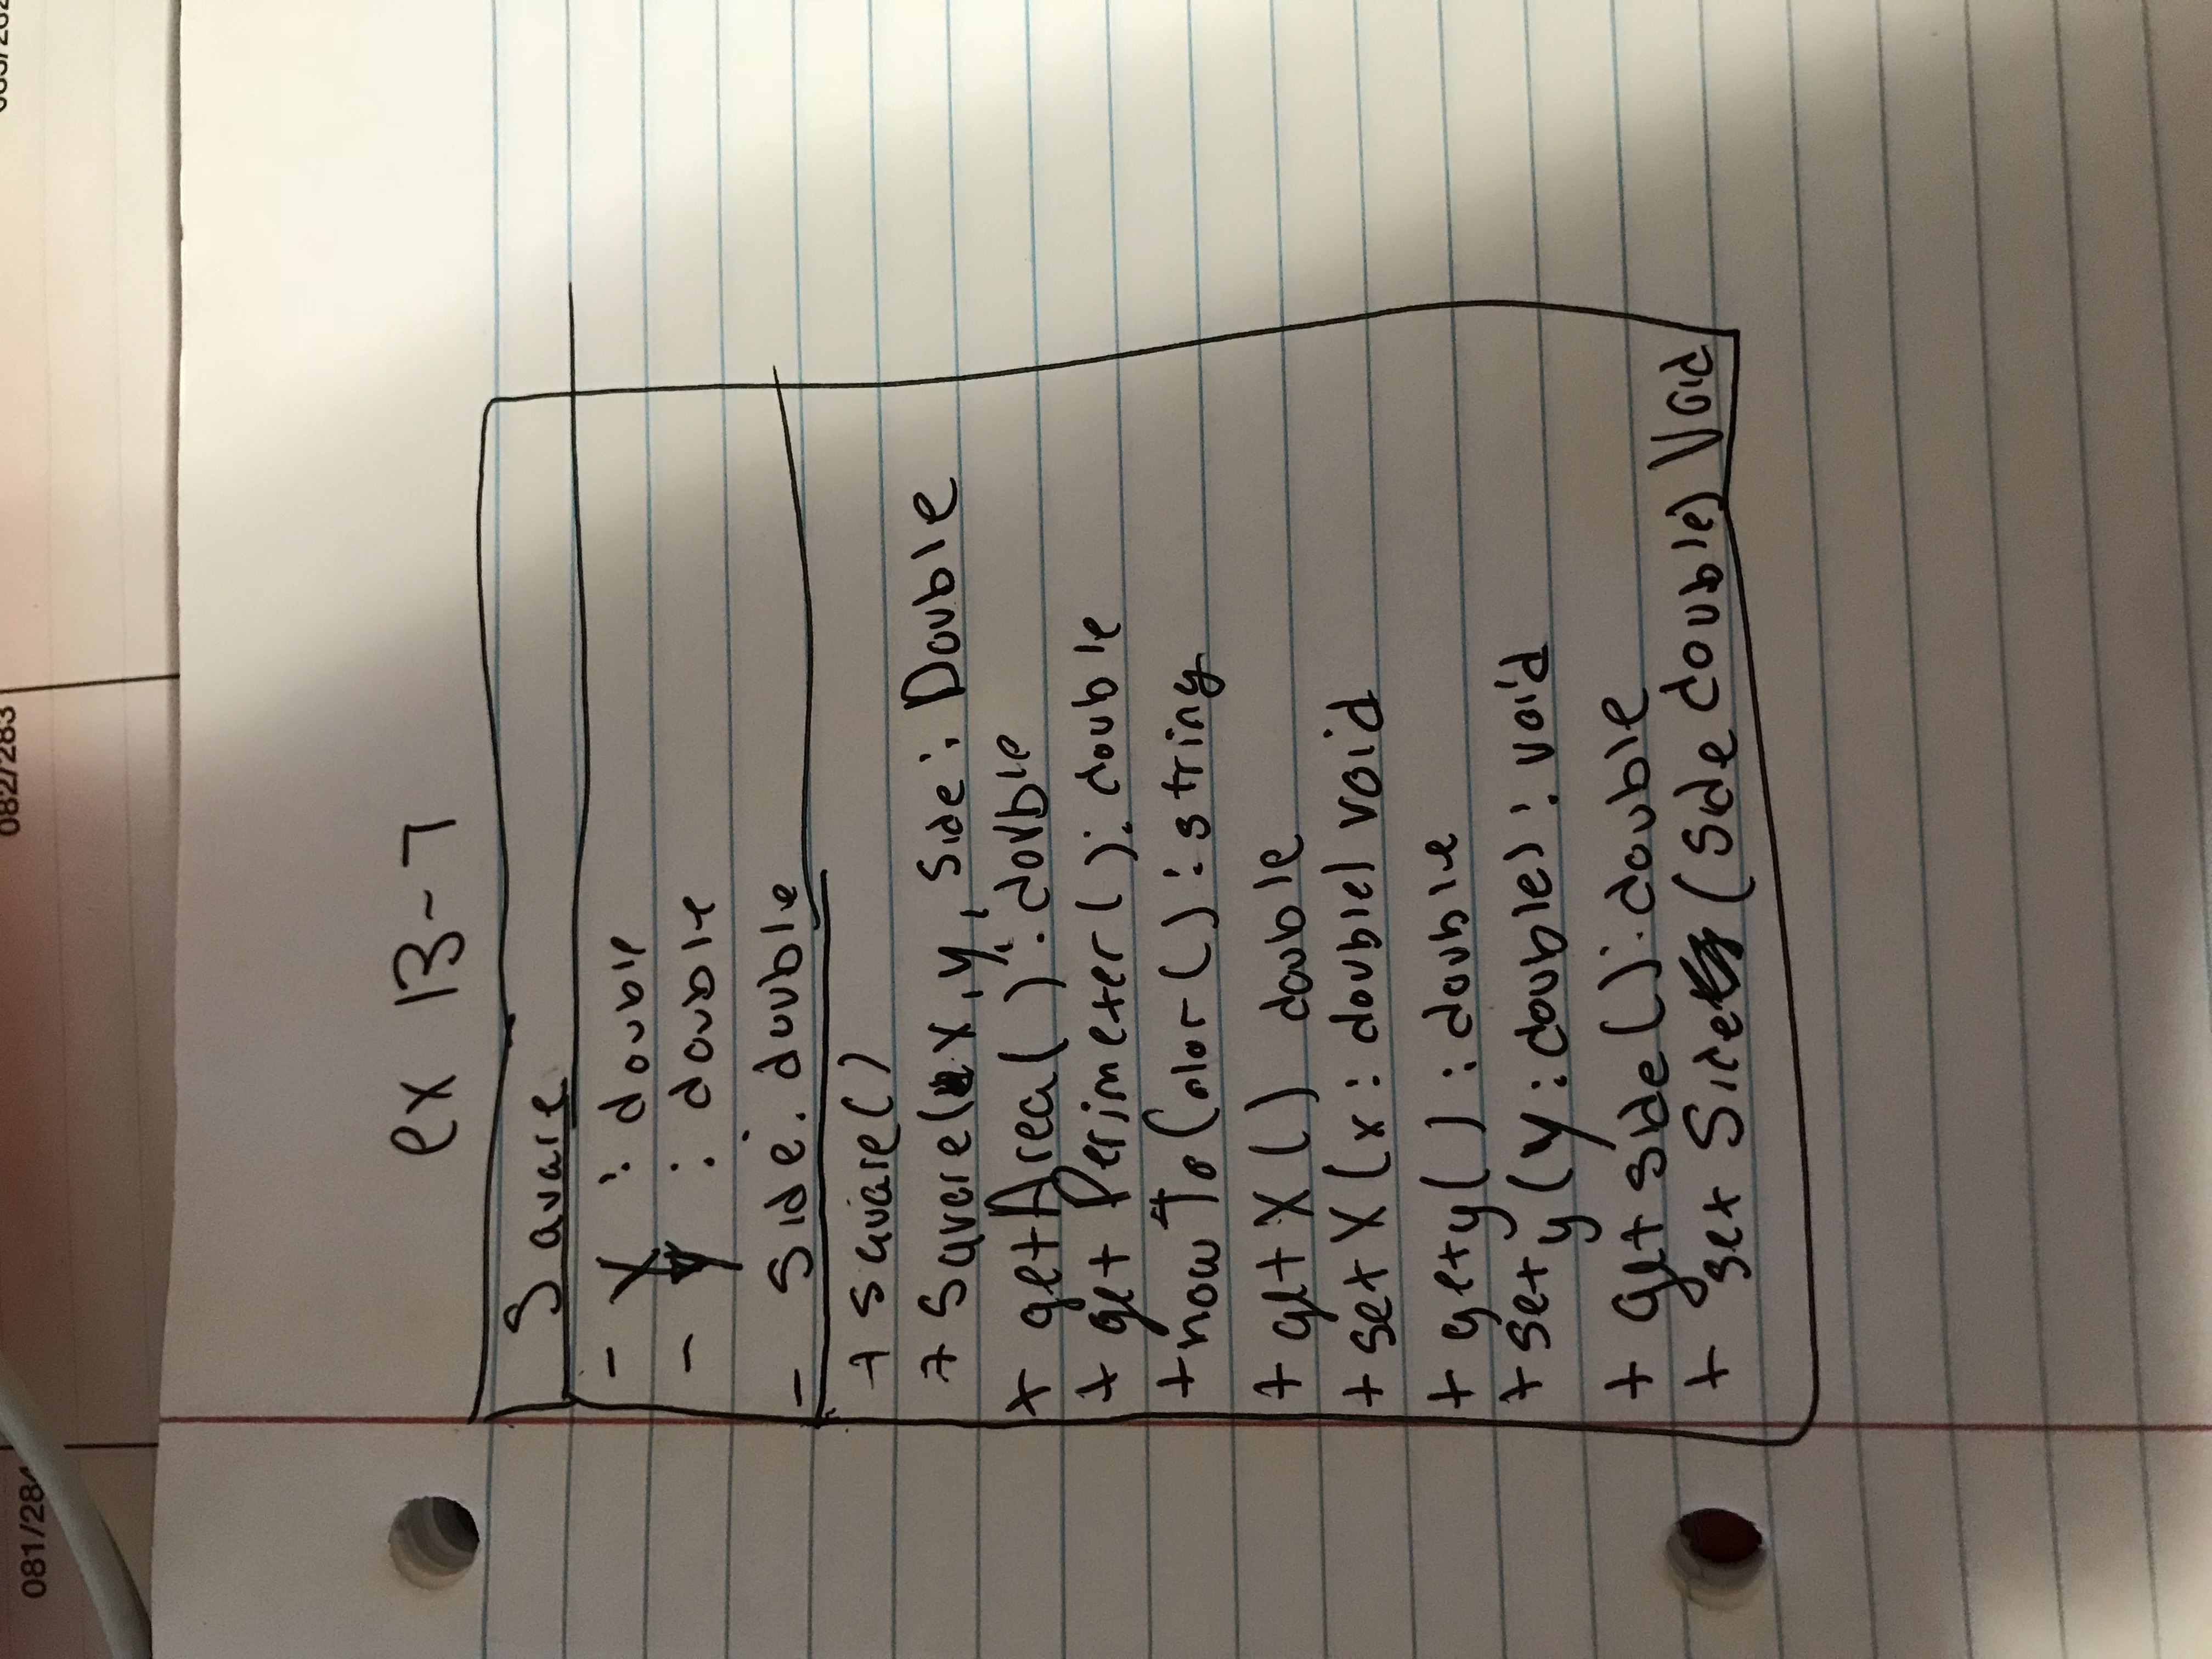 081/284
082/283
ex 13-7
Square
- X : double
- y : double
- side : double
+ square()
+ Square(x, y, side : Double
+ getArea( ) : double
+ get Perimeter( ) : double
+ how To Color ( ) : string
+ get X ( ) double
+ set X (x : double) void
+ get y( ) : double
+ set y (y : double) : void
+ get side ( ) : double
+ set Side (side double) Void